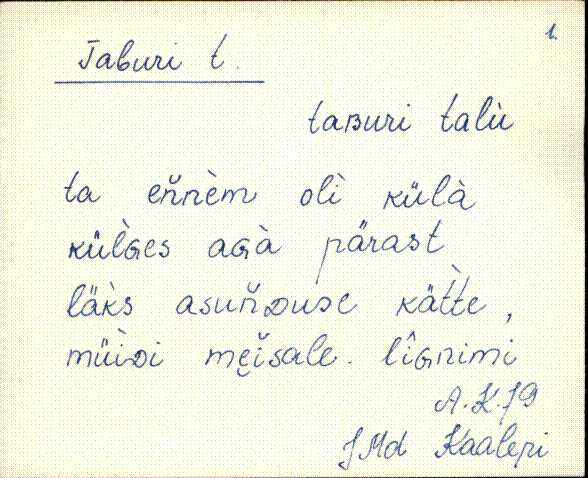 1.
Taburi t.
taʙuri talù
ta eňnèm olì külà
külɢ̀es aɢà pärast
läk̀s asuňᴅuse kätt̀e,
müìᴅi mẹĭsale. lîɢnimi
A.K. J9
JMd Kaalepi